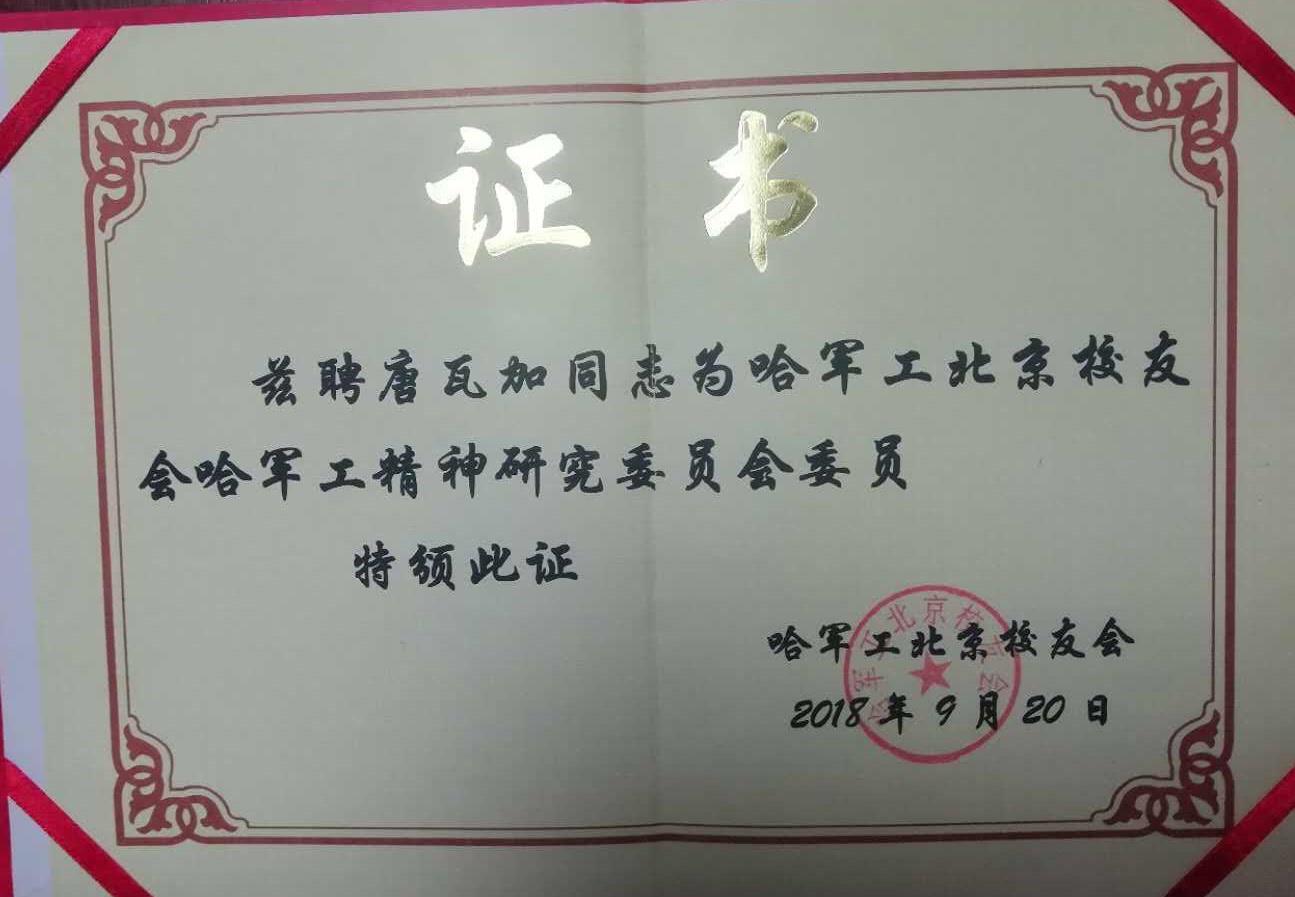 证书
兹聘唐瓦加同志为哈军工北京校友
会哈军工精神研究委员会委员
特颁此证
哈军工北京校友会
2018年9月20日
哈军工北京校友会